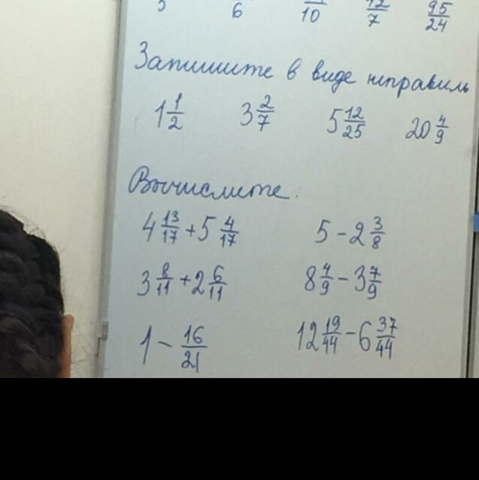 95/24
Запишите в виде неправиль
1 1/2 3 2/7 5 12/25 20 4/9
Вычислите.
4 13/17 + 5 4/17 5 - 2 3/8
3 8/11 + 2 6/11 8 4/9 - 3 7/9
1 - 16/21 12 19/44 - 6 37/44